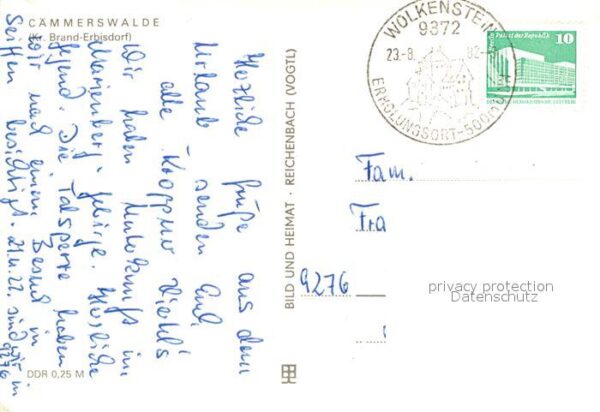 CÄMMERSWALDE
(Kr. Brand-Erbisdorf)
Herzliche Grüße aus dem
Urlaub senden Euch
alle
Wir haben Unterkunft im
Marienberg. Gebirge. Herrliche
Gegend. Die Talsperre haben
wir nach einem Besuch in
Seiffen besichtigt. sind wir in
9276
DDR 0,25 M
BILD UND HEIMAT · REICHENBACH (VOGTL)
WOLKENSTEIN
9372
23.-8.
82-
ERHOLUNGSORT-500
Palast der Republik
10
Fam.
Fra
9276
privacy protection
Datenschutz